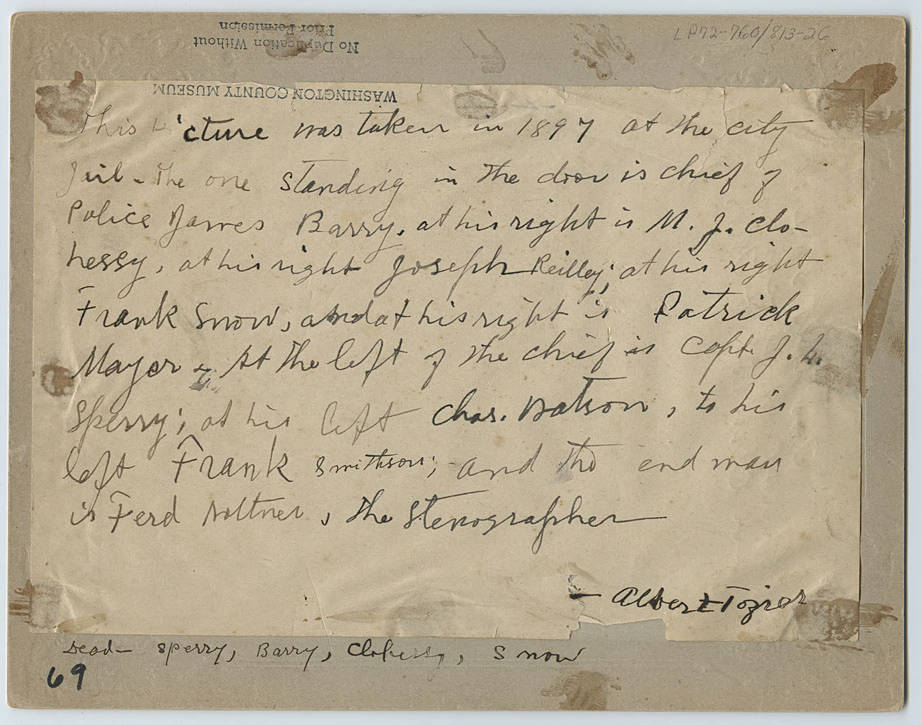 No Duplication Without
Prior Permission
LP72-760/813-26
WASHINGTON COUNTY MUSEUM
This Picture was taken in 1897 at the city
Jail - the one standing in the door is chief of
Police James Barry, at his right is M. J. Clo-
hessy, at his right Joseph Reilley; at his right
Frank Snow, and at his right is Patrick
Mayer. At the left of the chief is Capt. J. L.
Sperry; at his left Chas. Watson, to his
left Frank Smithson; and the end man
is Ferd Noltner, the Stenographer
- Albert Tozier
Dead - Sperry, Barry, Clohessy, Snow
69